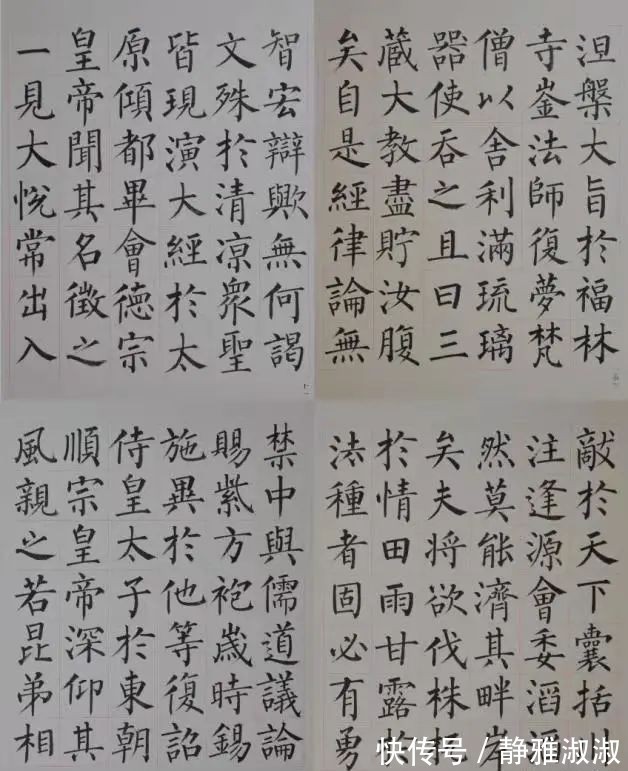 涅槃大旨於福林
寺崟法師復夢梵
僧以舍利滿琉璃
器使吞之且曰三
藏大教盡貯汝腹
矣自是經律論無
敵於天下囊括川
注逢源會委滔滔
然莫能濟其畔岸
矣夫將欲伐株杌
於情田雨甘露於
法種者固必有勇
智宏辯歟無何謁
文殊於清凉衆聖
皆現演大經於太
原傾都畢會德宗
皇帝聞其名徵之
一見大悅常出入
禁中與儒道議論
賜紫方袍歲時錫
施異於他等復詔
侍皇太子於東朝
順宗皇帝深仰其
風親之若昆弟相
快传号／静雅淑淑